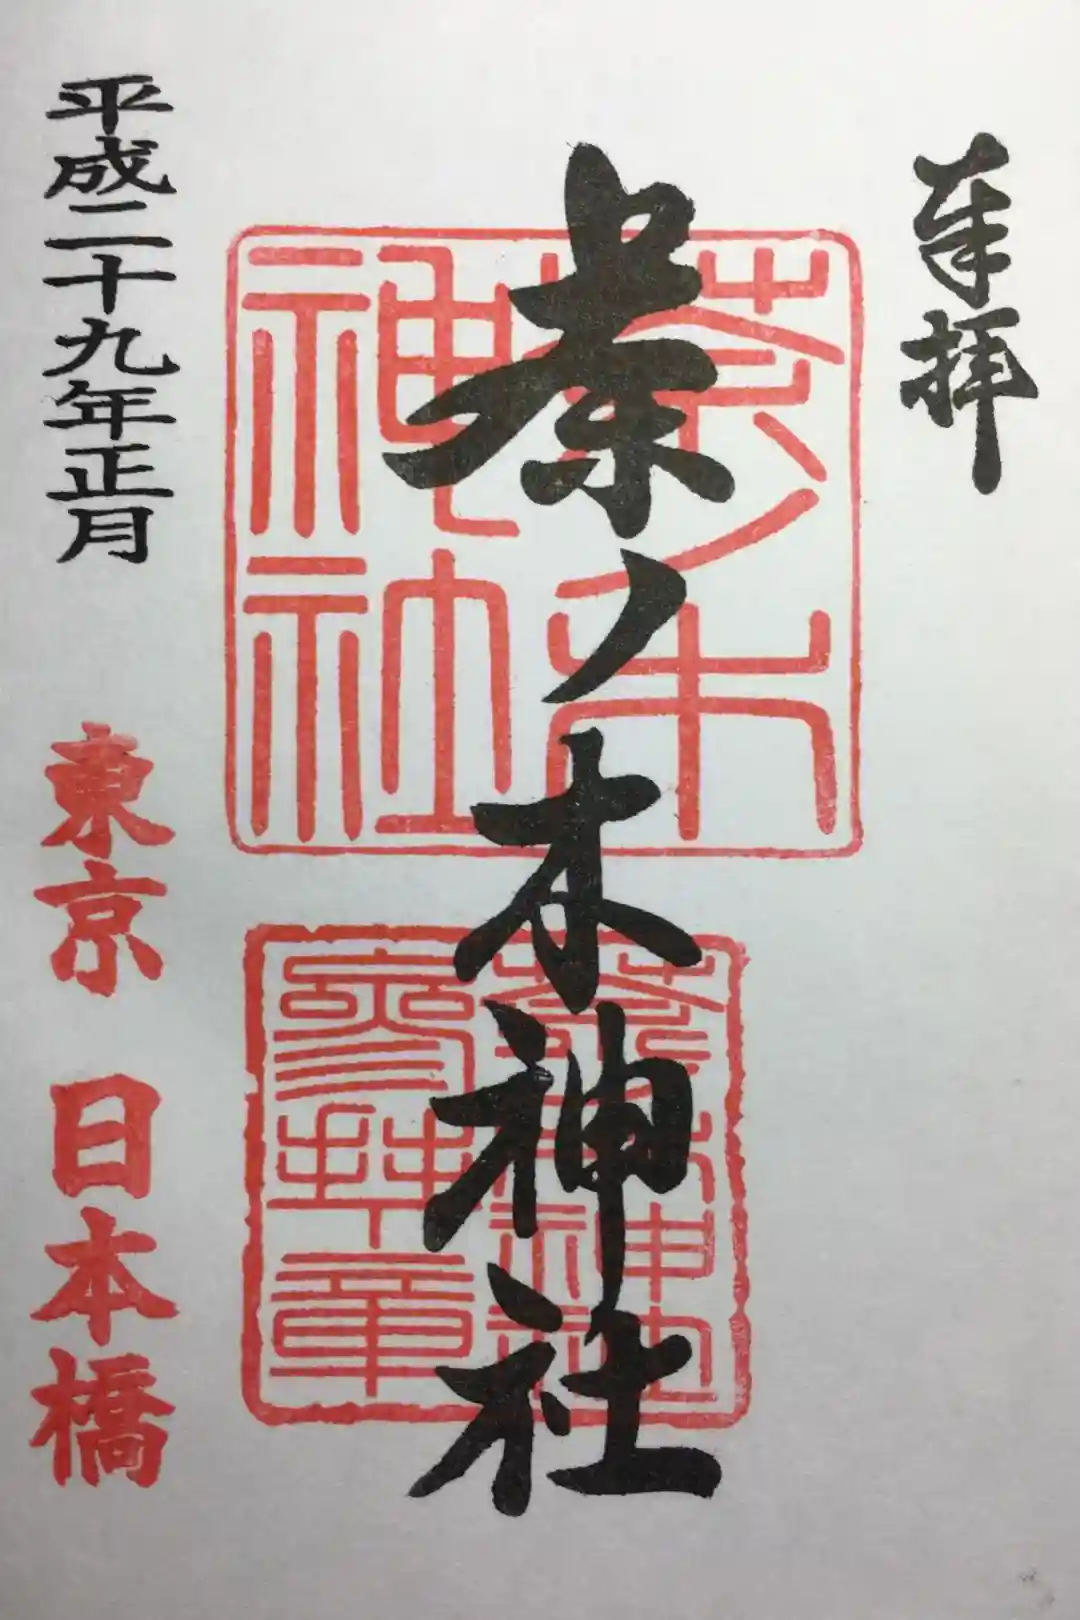 奉拝
茶ノ木神社
茶ノ木
神社
茶ノ木神社
參拝章
平成二十九年正月
東京 日本橋